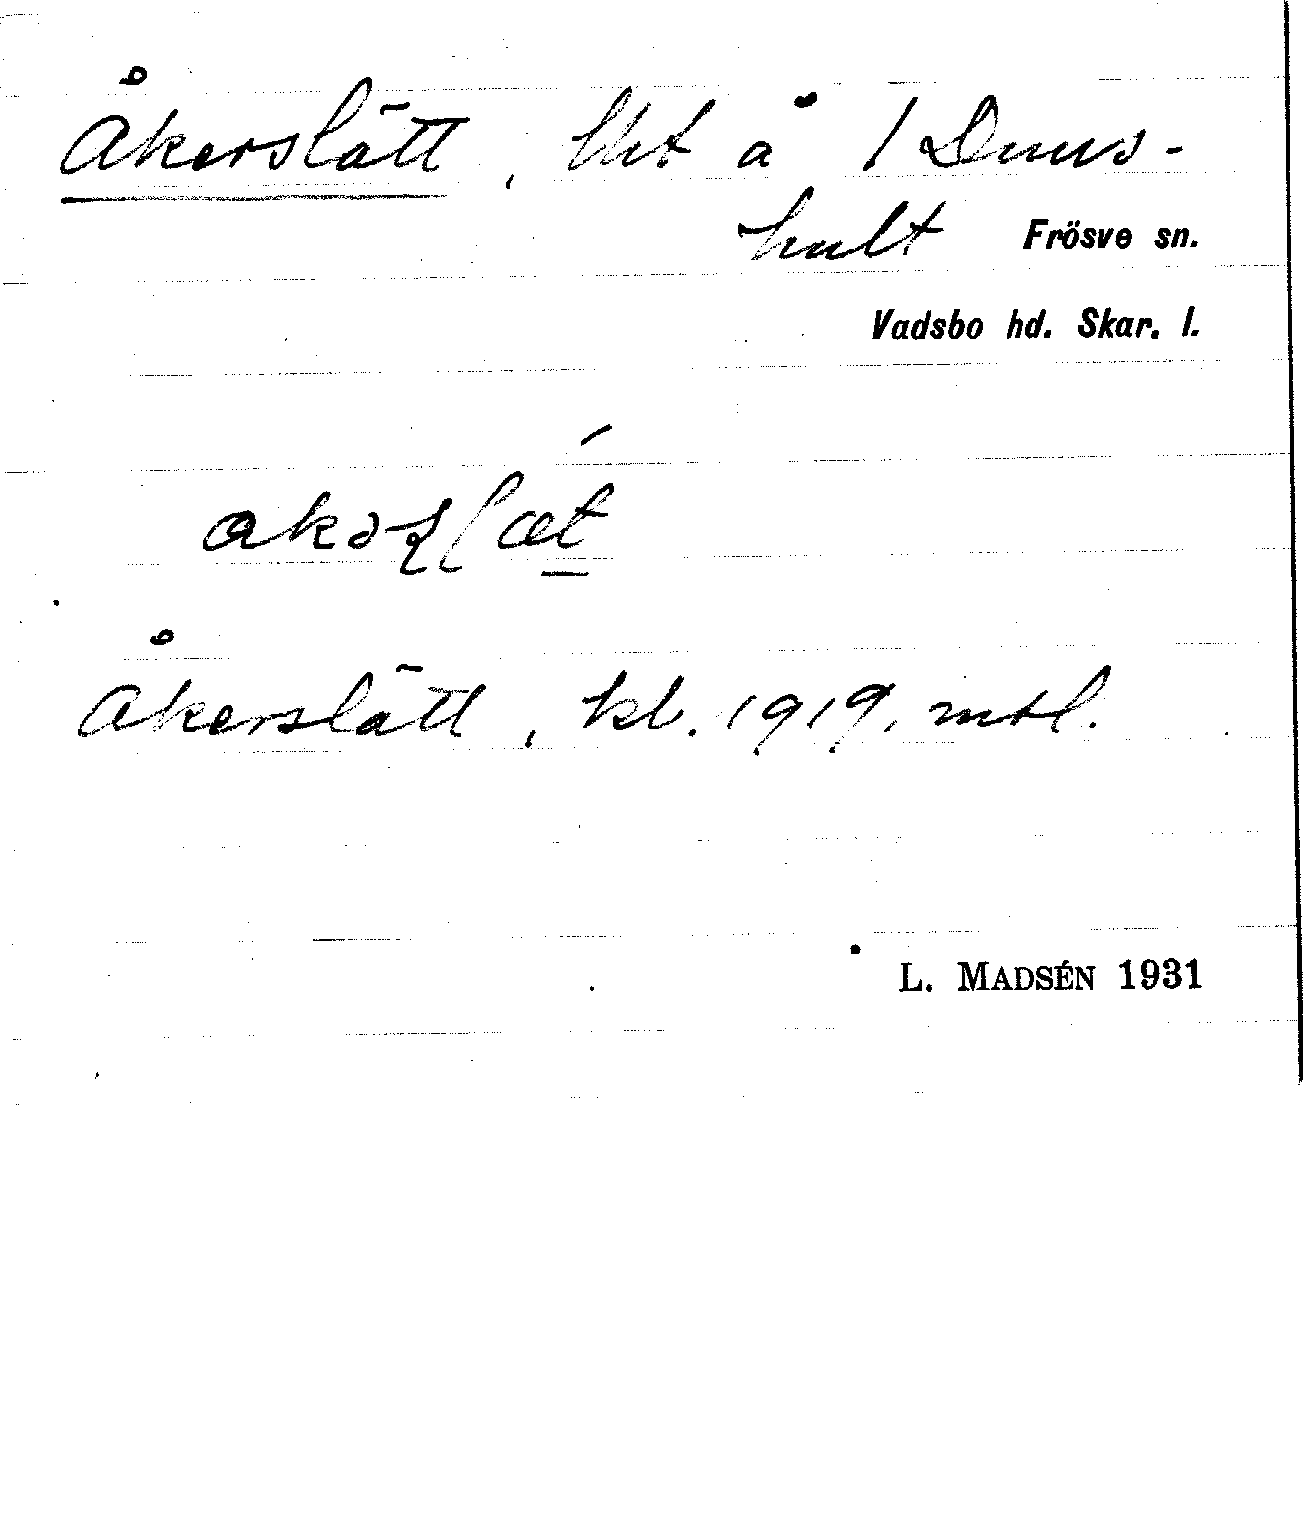 Åkerslätt, lht å 1 Duns-
hult Frösve sn.
Vadsbo hd. Skar. l.
Åkerslätt, kl. 1919, mtl.
L. MADSÉN 1931